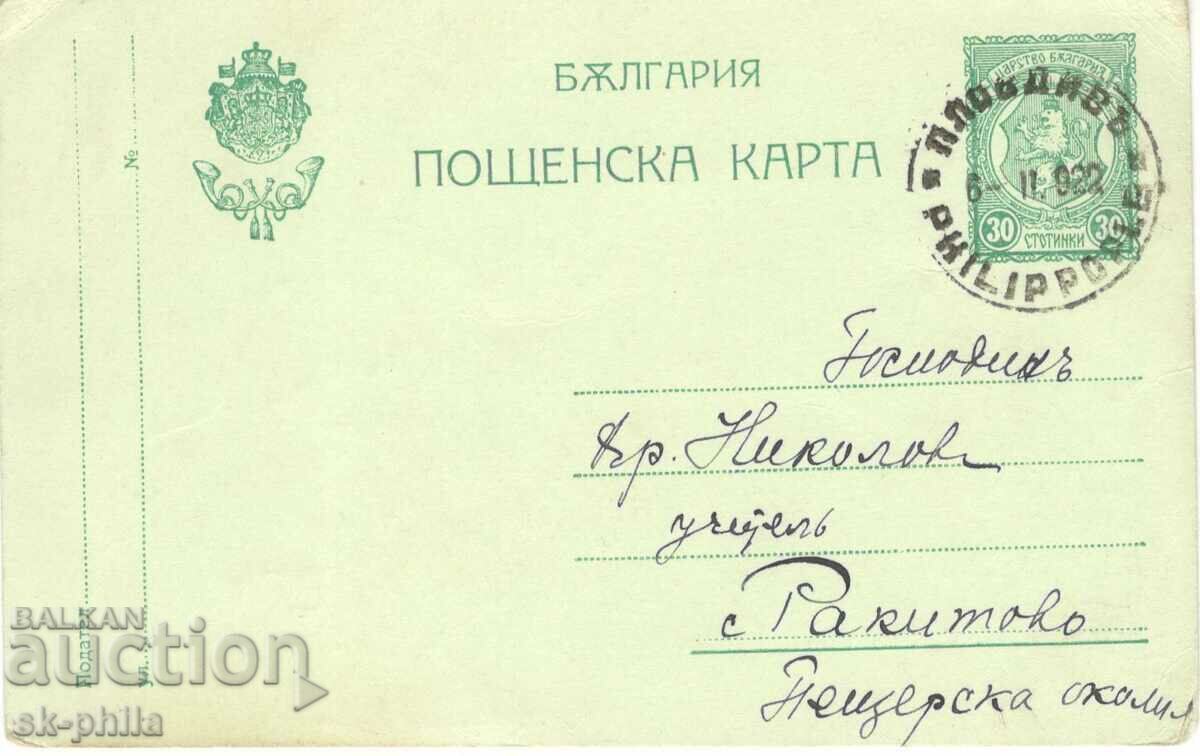 БѪЛГАРИЯ
ПОЩЕНСКА КАРТА
ЦАРСТВО БЪЛГАРИЯ
30 СТОТИНКИ 30
ПЛОВДИВЪ
6- II. 922
PHILIPPOPLE
№
Подател
ул.
Господинъ
Кр. Николовъ
учитель
с Ракитово
Пещерска околия
BALKAN
auction
sk-phila